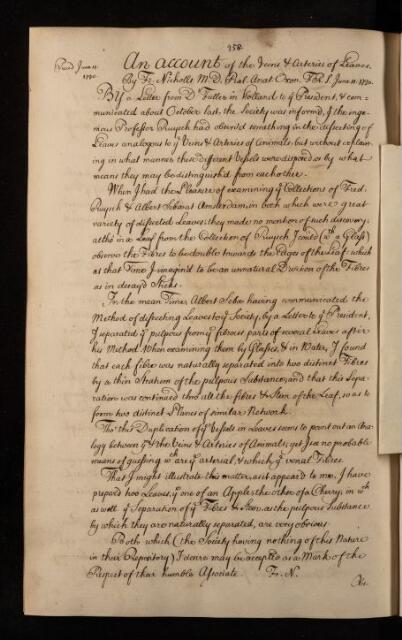 258
Read June 11
1730.
An account of the Veins & Arteries of Leaves.
By Fr. Nicholls M.D. Præl. Anat Oxon. F.R.S. June 11. 1730.
By a Letter from Dr Fuller in Holland to ye President, & com-
municated about October last, the Society was inform'd, yt the inge-
nious Professor Ruysch had observ'd something in the dissecting of
Leaves analogous to ye Veins & Arteries of Animals, but without explain-
ing in what manner these different Vessels were disposed or by what
means they may be distinguish'd from each other.
When I had the Pleasure of examining ye Collections of Fred.
Ruysch & Albert Seba at Amsterdam, in both which were great
variety of dissected Leaves; they made no mention of such discovery;
altho' in a Leaf from the Collection of Ruysch I could (wth a Glass)
observe the Fibres to be double towards the Edges of the Leaf: which
at that Time I imagin'd to be an unnatural Division of the Fibres
as in decay'd Sticks.
In the mean Time, Albert Seba having communicated the
Method of dissecting Leaves to ye Society, by a Letter to ye President,
I separated ye pulpous from ye fibrous parts of several Leaves after
his Method. When examining them by Glasses, & in Water, I found
that each fibre was naturally separated into two distinct Fibres
by a thin Stratum of the pulpous Substance; and that this Sepa-
ration was continued thro' all the fibres & Stem of the Leaf, so as to
form two distinct Planes of similar Network.
Tho' this Duplication of ye Vessels in Leaves seems to point out an Ana-
logy between ym & the Veins & Arteries of Animals; yet I see no probable
means of guessing wch are ye arterial, & which ye venal Fibres.
That I might illustrate this matter, as it appear'd to me, I have
prepar'd two Leaves, ye one of an Apple, the other of a Cherry; in wch
as well ye Separation of ye Fibres & Stem, as the pulpous Substance
by which they are naturally separated, are very obvious.
Both which (the Society having nothing of this Nature
in their Repository) I desire may be accepted as a Mark of the
Respect of their humble Associate. Fr. N.